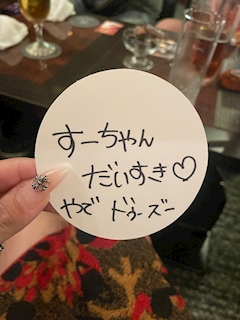 すーちゃん
だいすき♡
やで ドゥーズー